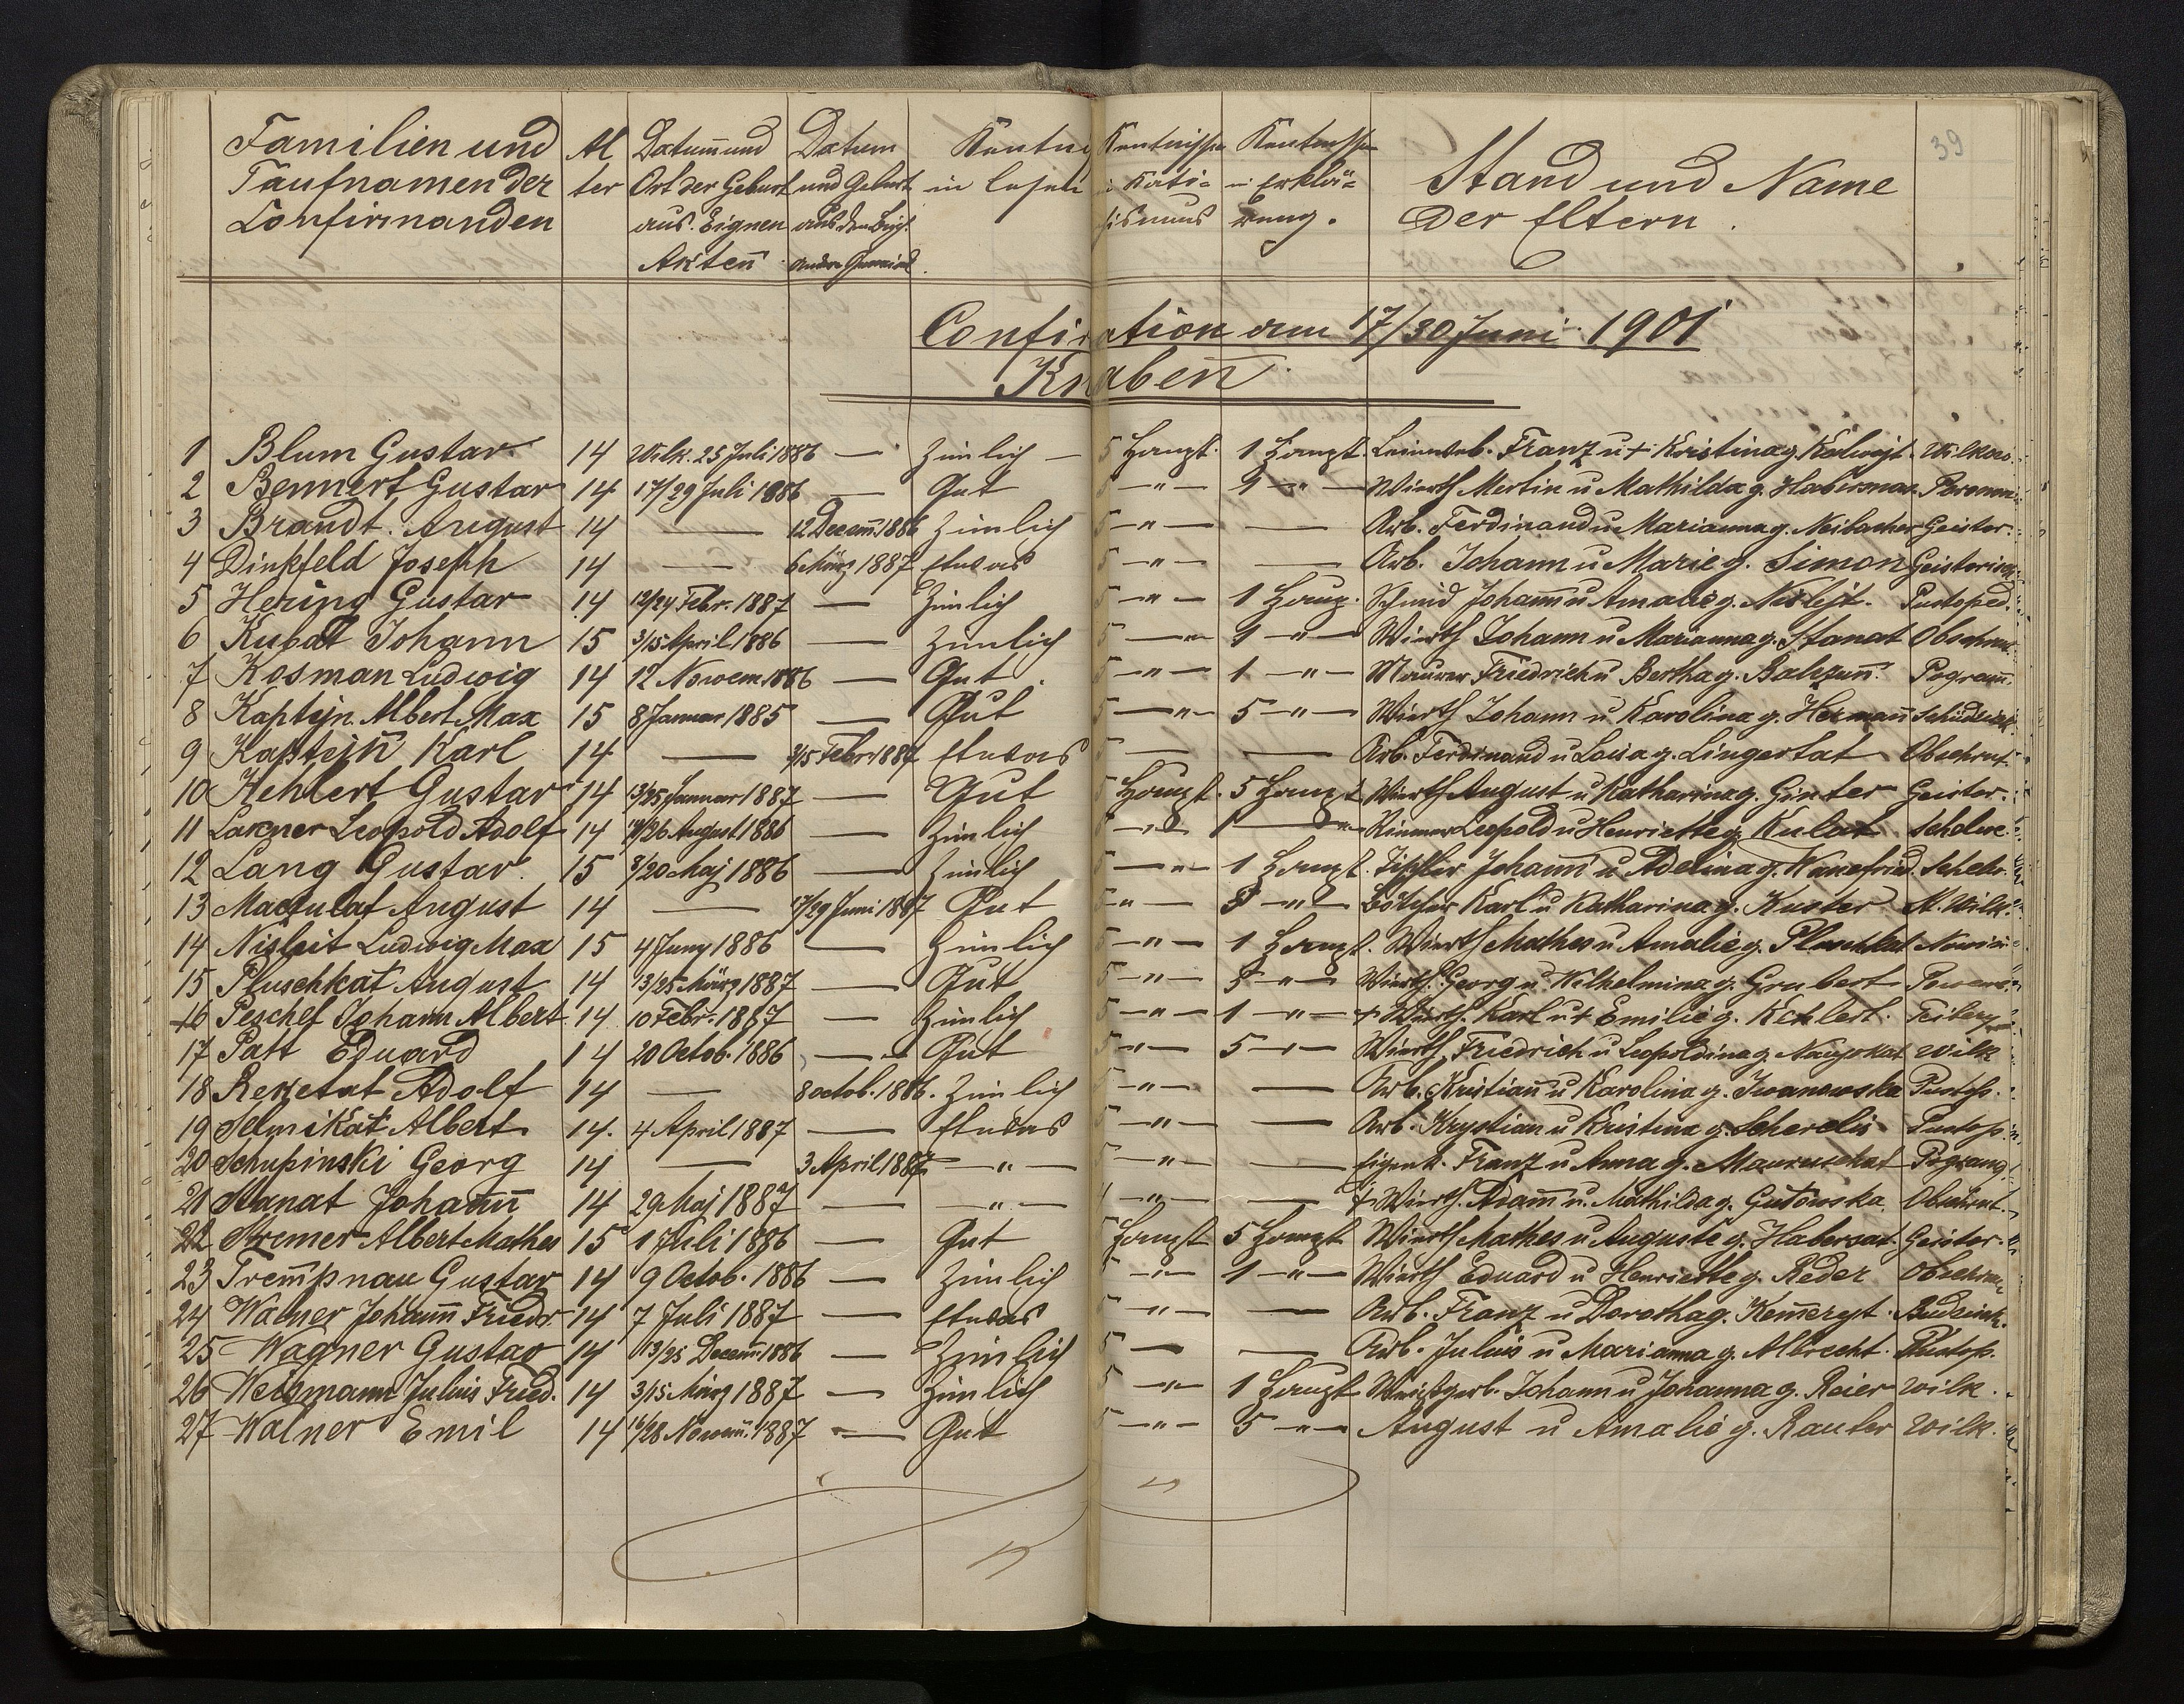 39
Familien und Taufnamen der Confirmanden
Al ter
Datum und Ort der Geburt aus Eignen Akten
Datum und Geburt aus
Kentni in lesen
Kentnisse Kati= ismus
Kentnisse in Erklä= rung.
Stand und Name der Eltern.
Confir ation am 17/30 Juni 1901
Knaben.
1 Blum Gustav 14 Wilk. 25 Juli 1886 — Zimlich — 5 Haupt. 1 Haupt. Leinweb. Franz u + Kristina g.
2 Bennert Gustav 14 17/29 Juli 1886 — Gut 5 —"— 1 —"— Wierth Mertin u Mathilda g.
3 Brandt August 14 — 12 Decem̄ 1886 Zimlich 5 —"— — Arb. Ferdinand u Marianna g. Neibacher Geister.
4 Dinkfeld Joseph 14 — 6 März 1887 Etwas 5 —"— — Arb. Johann u Marie g. Simon
5 Hering Gustav 14 12/24 Febr. 1887 — Zimlich 5 —"— 1 Haup. Schmid Johan̄ u Amalie g. Pustoped.
6 Kubat Johann 15 3/15 April 1886 — Zimlich 5 —"— 1 —"— Wierth Johann u Marianna g. Stanat
7 Kosman Ludwig 14 12 Novem. 1886 — Gut 5 —"— 1 —"— Maurer Friedrich u Bertha g.
8 Kaptijn Albert Max 15 8 Januar 1885 — Gut 5 —"— 5 —"— Wierth Johann u Karolina g. Herman̄
9 Kaptijn̄ Karl 14 — 3/15 Febr. 1887 Etwas 5 — — Arb. Ferdinand u g. Lingertat Obschrut.
10 Kehlert Gustav 14 13/25 Januar 1887 — Gut 5 Haupt. 5 Haupt Wierth August u Katharina g. Ginter Geister.
11 Lakner Leopold Adolf 14 14/26 August 1886 — Zimlich Leopold u Henriette g. Kulat
12 Lang Gustav. 15 8/20 Maj 1886 — Zimlich 5 —"— 1 Haupt. Tischler Johan̄ u Adelina g.
13 Mactulat August 14 — 17/29 Juni 1887 Gut 5 —"— 5 —"— Karl u Katharina g. Kuster
14 Nisleit Ludwig Max 15 4 Juny 1886 — Zimlich 5 —"— 1 Haupt. Wierth Mathes u Amalie g.
15 Pluschkat August 14 13/25 März 1887 — Gut 5 —"— 5 —"— Wierth. Georg u Wilhelmina g. Grubert
16 Peschel Johann Albert 14 10 Febr. 1887 — Zimlich 5 —"— 1 —"— + Wierth. Karl u + Emilie g. Kehlert.
17 Patt Eduard 14 20 Octob. 1886 — Gut 5 —"— 5 —"— Wierth Friedrich u Leopoldina g. Naujokat Wilk
18 Reketat Adolf 14 — 8 octob. 1886. Zimlich 5 —"— — Arb. Kristian̄ u Karolina g. Iwanowska
19 Selmikat Albert 14. 4 April 1887 — Etwas 5 —"— — Arb. Krystian u Kristina g. Pustop.
20 Schupinski Georg 14 — 3 April 1887 —"— 5 —"— — Eigent. Franz u Anna g.
21 Stanat Johan̄n 14 29 Maj 1887 — —"— —"— — + Wierth. Adam̄ u. Mathilda g. Gutowska
22 Stremer Albert Mathes 15 1 Juli 1886 — Gut Haupt 5 Haupt Wierth Mathes u Auguste g. Habersat Geister.
23 Trem̄pnau Gustav 14 9 Octob. 1886 — Zimlich 5 —"— 1 —"— Wierth Eduard u Henriette g. Reder
24 Walner Johan̄n Friedr. 14 7 Juli 1887 — Etwas 5 —"— — Arb. Franz u Dorothea g.
25 Wagner Gustav 14 13/25 Decem̄ 1886 — Zimlich 5 — — Arb. Julius u Marianna g. Albrecht. Pustop.
26 Weismann Julius Fried. 14 3/15 März 1887 — Zimlich 5 —"— 1 Haupt Weissgerb. Johann u Johanna g. Reier Wilk.
27 Walner Emil 14 16/28 Novem̄. 1887 — Gut 5 —"— 5 —"— August u Amalie g. Rauter Wilk.